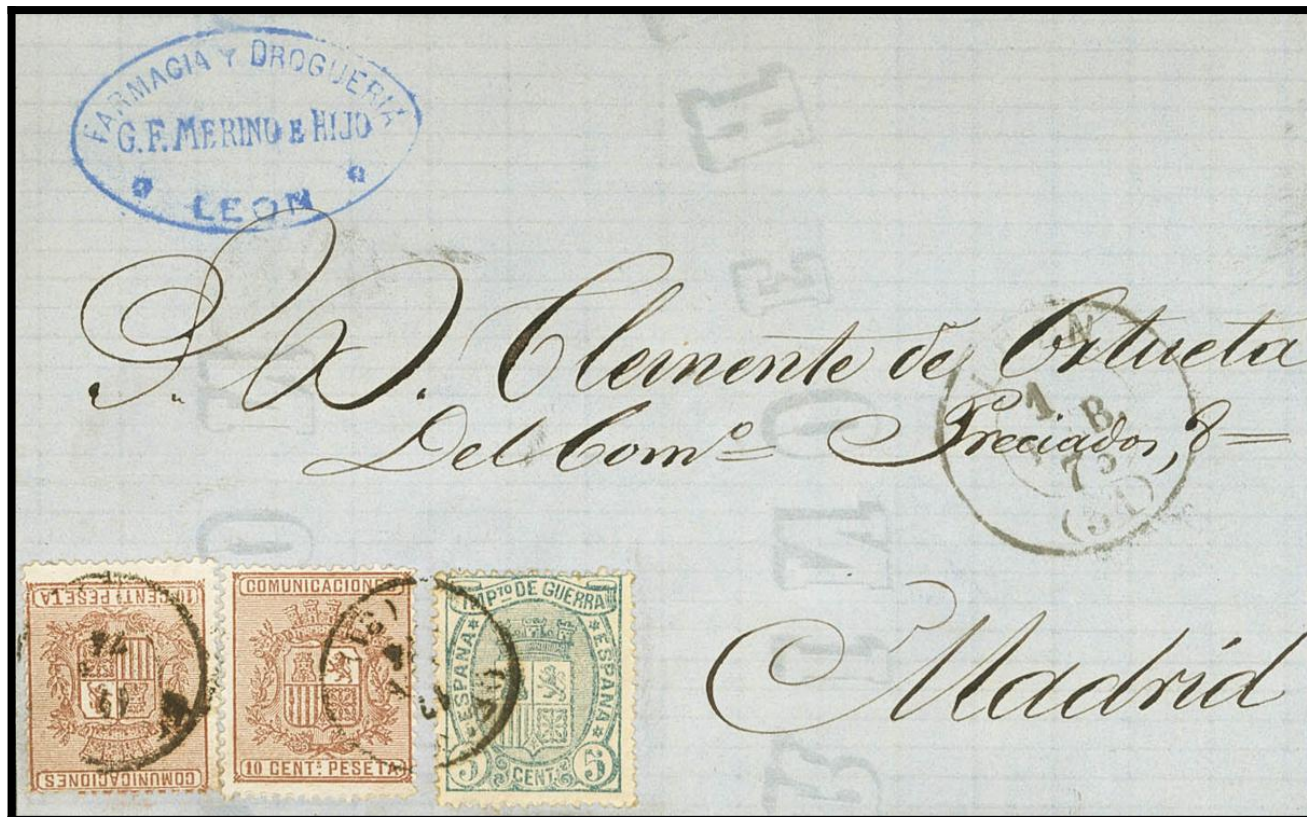 FARMACIA Y DROGUERIA
G. F. MERINO E HIJO
LEON
S. D. Clemente de Ortueta
Del Comº Preciados, 8
Madrid
10 CENTs PESETA
COMUNICACIONES
COMUNICACIONE
10 CENTs PESETA
IMPTO DE GUERRA
ESPAÑA
ESPAÑA
5 CENT. 5